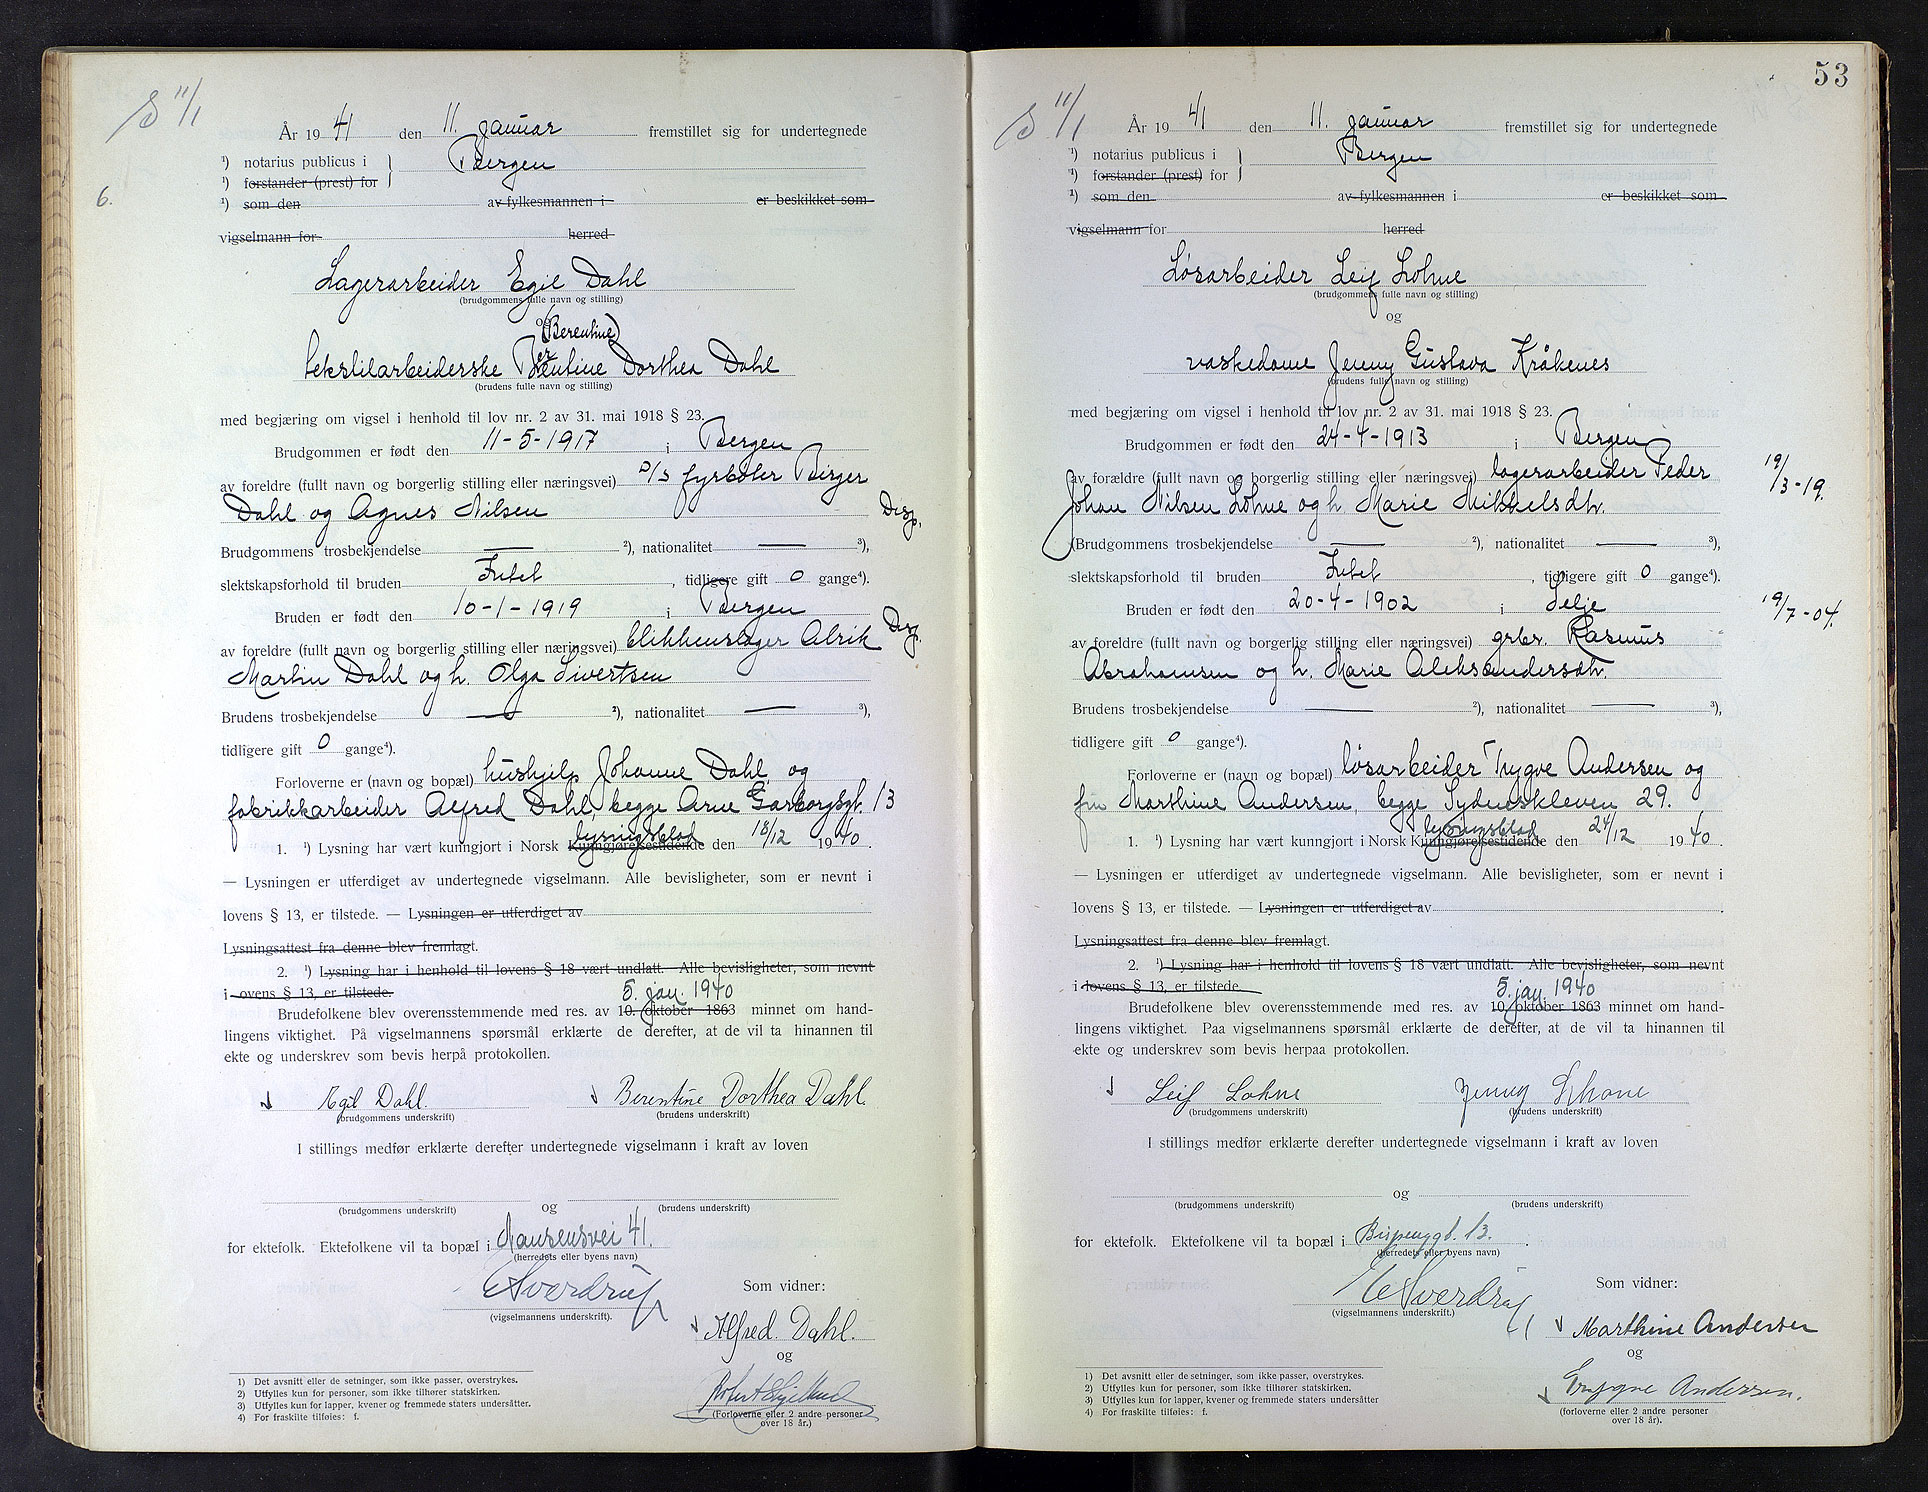 S 11/1
År 1941 den 11. januar fremstillet sig for undertegnede
¹) notarius publicus i } Bergen
¹) forstander (prest) for
6.
¹) som den av fylkesmannen i er beskikket som
vigselmann for herred
Lagerarbeider Egil Dahl
(brudgommens fulle navn og stilling)
og
(Berentine)
tekstilarbeiderske Berentine Dorthea Dahl
(brudens fulle navn og stilling)
med begjæring om vigsel i henhold til lov nr. 2 av 31. mai 1918 § 23.
Brudgommen er født den 11-5-1917 i Bergen
av foreldre (fullt navn og borgerlig stilling eller næringsvei) D/S fyrbøter Birger
Dahl og Agnes Nilsen Disp.
Brudgommens trosbekjendelse — ²), nationalitet — ³),
slektskapsforhold til bruden Intet, tidligere gift 0 gange⁴).
Bruden er født den 10-1-1919 i Bergen
av foreldre (fullt navn og borgerlig stilling eller næringsvei) blikkenslager Alrik Disp.
Martin Dahl og h. Olga Sivertsen
Brudens trosbekjendelse — ²), nationalitet — ³),
tidligere gift 0 gange⁴).
Forloverne er (navn og bopæl) hushjelp Johanne Dahl og
fabrikkarbeider Alfred Dahl, begge Arne Garborgsgt. 13
lysningsblad
1. ¹) Lysning har vært kunngjort i Norsk Kunngjørelsestidende den 18/12 1940.
— Lysningen er utferdiget av undertegnede vigselmann. Alle bevisligheter, som er nevnt i
lovens § 13, er tilstede. — Lysningen er utferdiget av
Lysningsattest fra denne blev fremlagt.
2. ¹) Lysning har i henhold til lovens § 18 vært undlatt. Alle bevisligheter, som nevnt
i lovens § 13, er tilstede. 5. jan. 1940
Brudefolkene blev overensstemmende med res. av 10. oktober 1863 minnet om hand-
lingens viktighet. På vigselmannens spørsmål erklærte de derefter, at de vil ta hinannen til
ekte og underskrev som bevis herpå protokollen.
Egil Dahl. Berentine Dorthea Dahl.
(brudgommens underskrift) (brudens underskrift)
I stillings medfør erklærte derefter undertegnede vigselmann i kraft av loven
og
(brudgommens underskrift) (brudens underskrift)
for ektefolk. Ektefolkene vil ta bopæl i Hansensvei 41.
(herredets eller byens navn)
Sverdrup Som vidner:
(vigselmannens underskrift).
Alfred. Dahl.
og
(Forloverne eller 2 andre personer
over 18 år.)
1) Det avsnitt eller de setninger, som ikke passer, overstrykes.
2) Utfylles kun for personer, som ikke tilhører statskirken.
3) Utfylles kun for lapper, kvener og fremmede staters undersåtter.
4) For fraskilte tilføies: f.
53
S 11/1
År 1941 den 11. januar fremstillet sig for undertegnede
¹) notarius publicus i } Bergen
¹) forstander (prest) for
¹) som den av fylkesmannen i er beskikket som
vigselmann for herred
Løsarbeider Leif Lohne
(brudgommens fulle navn og stilling)
og
vaskedame Jenny Gustava Kråkenes
(brudens fulle navn og stilling)
med begjæring om vigsel i henhold til lov nr. 2 av 31. mai 1918 § 23.
Brudgommen er født den 24-4-1913 i Bergen
av forældre (fullt navn og borgerlig stilling eller næringsvei) lagerarbeider Peder 19/3-19.
Johan Nilsen Lohne og h. Marie Mikkelsdtr.
(Brudgommens trosbekjendelse — ²), nationalitet — ³),
slektskapsforhold til bruden Intet, tidligere gift 0 gange⁴).
Bruden er født den 20-4-1902 i Selje 19/7-04.
av foreldre (fullt navn og borgerlig stilling eller næringsvei) grbr. Rasmus
Abrahamsen og h. Marie Aleksandersdtr.
Brudens trosbekjendelse — ²), nationalitet — ³),
tidligere gift 0 gange⁴).
Forloverne er (navn og bopæl) løsarbeider Trygve Andersen og
fru Marthine Andersen, begge Sydneskleven 29.
lysningsblad
1. ¹) Lysning har vært kunngjort i Norsk Kunngjørelsestidende den 24/12 1940.
— Lysningen er utferdiget av undertegnede vigselmann. Alle bevisligheter, som er nevnt i
lovens § 13, er tilstede. — Lysningen er utferdiget av
Lysningsattest fra denne blev fremlagt.
2. ¹) Lysning har i henhold til lovens § 18 vært undlatt. Alle bevisligheter, som nevnt
i lovens § 13, er tilstede. 5. jan. 1940
Brudefolkene blev overensstemmende med res. av 10. oktober 1863 minnet om hand-
lingens viktighet. Paa vigselmannens spørsmål erklærte de derefter, at de vil ta hinannen til
ekte og underskrev som bevis herpaa protokollen.
Leif Lohne Jenny
(brudgommens underskrift) (brudens underskrift)
I stillings medfør erklærte derefter undertegnede vigselmann i kraft av loven
og
(brudgommens underskrift) (brudens underskrift)
for ektefolk. Ektefolkene vil ta bopæl i Bispenggt. 13.
(herredets eller byens navn)
Sverdrup Som vidner:
(vigselmannens underskrift.)
Marthine Andersen
og
Trygve Andersen.
(forloverne eller 2 andre personer
over 18 år).
1) Det avsnitt eller de setninger, som ikke passer, overstrykes.
2) Utfylles kun for personer, som ikke tilhører statskirken.
3) Utfylles kun for lapper, kvener og fremmede staters undersåtter
4) For fraskilte tilføies: f.